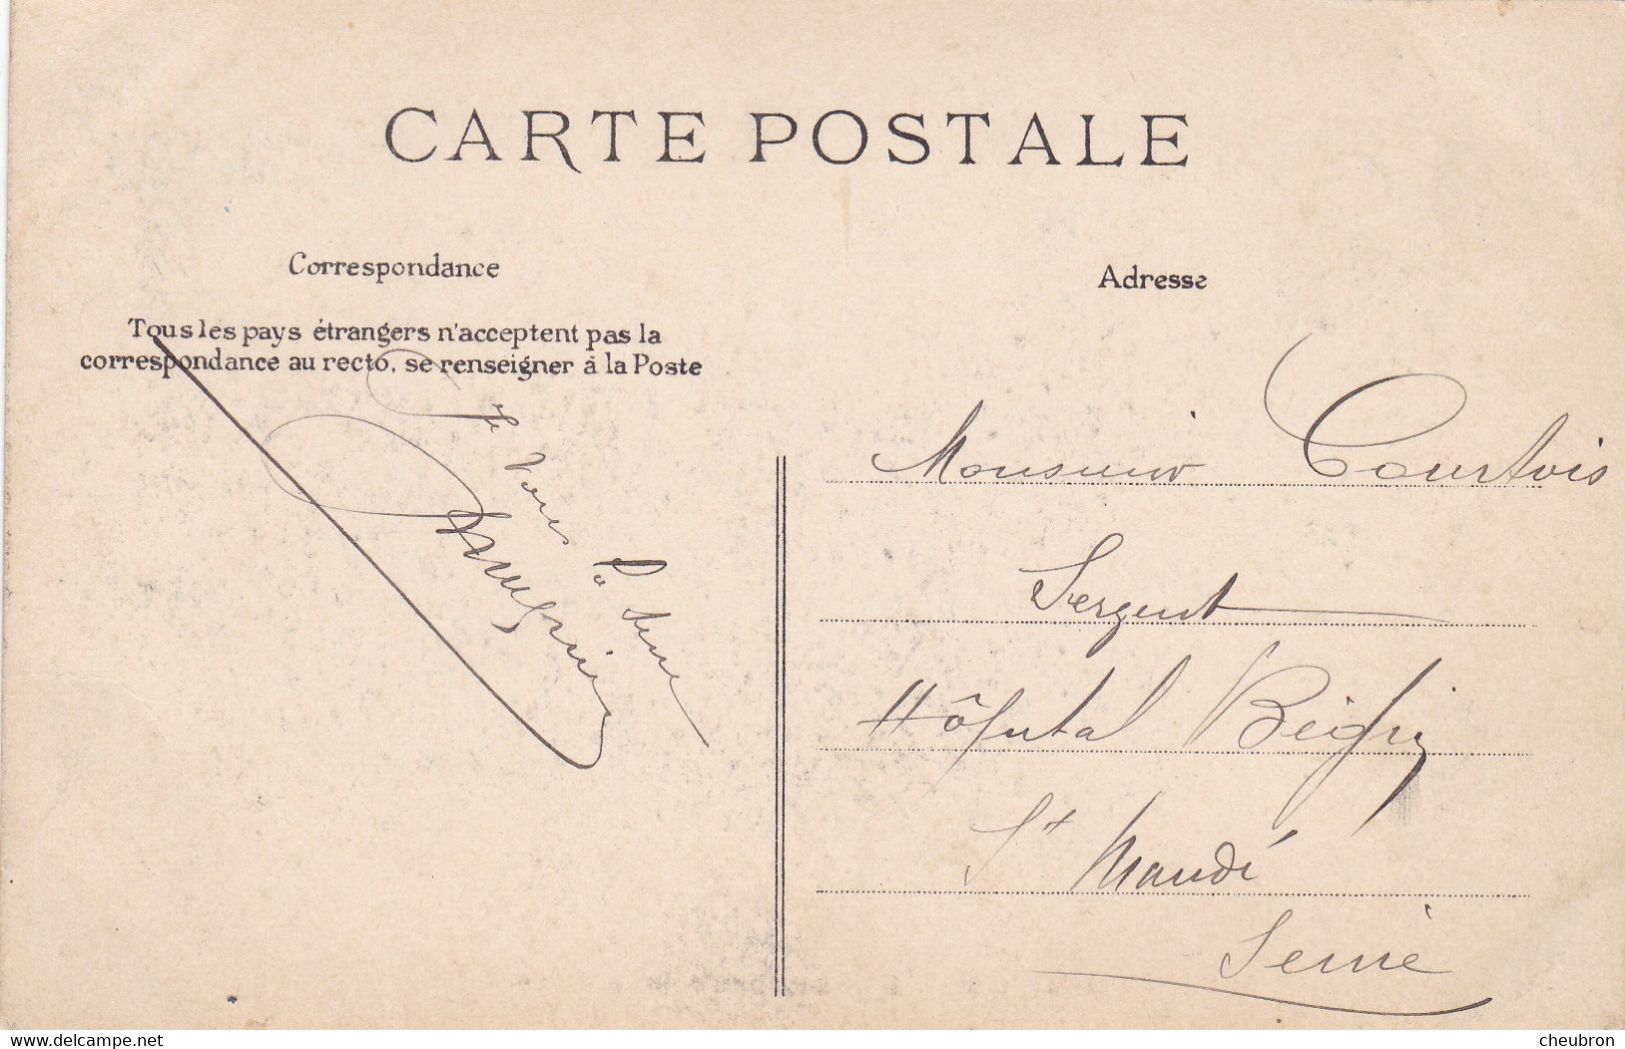 CARTE POSTALE
Correspondance
Adresse
Tous les pays étrangers n'acceptent pas la
correspondance au recto, se renseigner à la Poste
Monsieur Courtois
Sergent
Hôpital Bégin
St Mandé
Seine
delcampe.net
cheubron